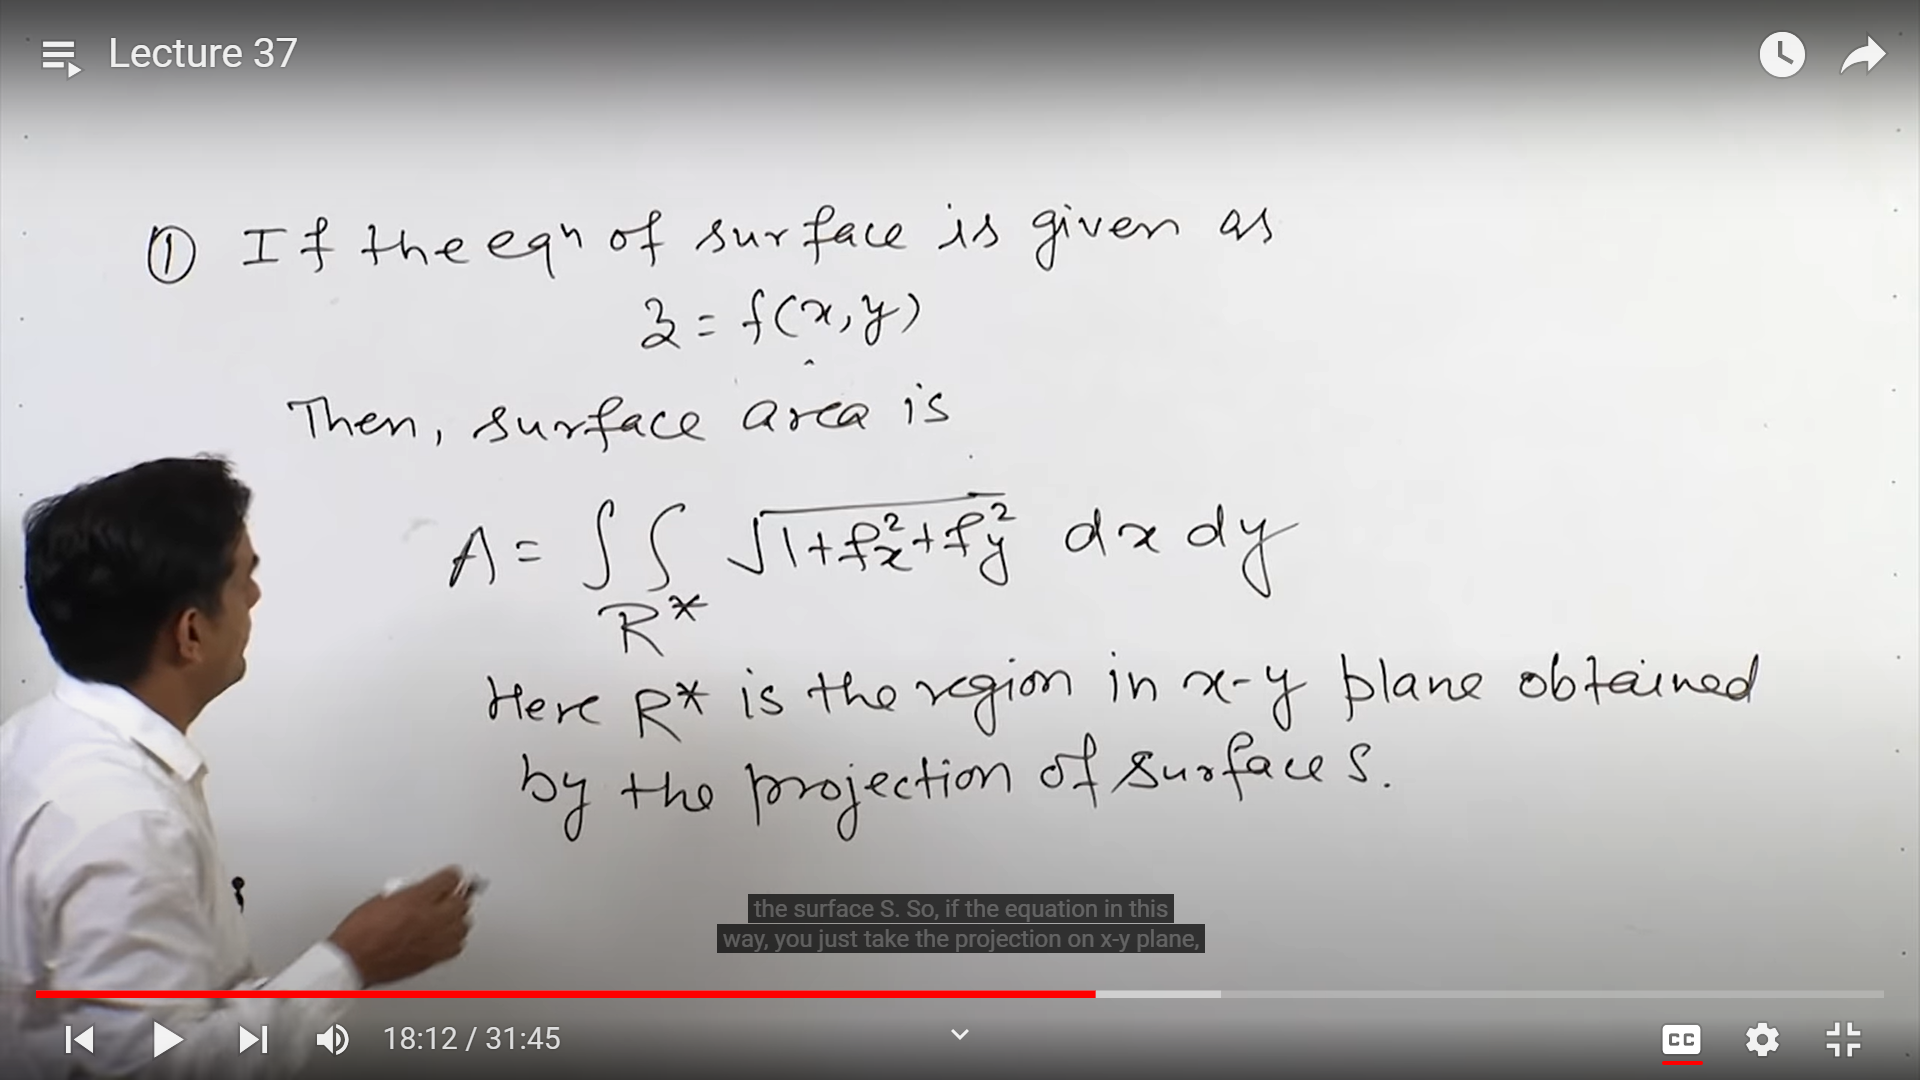 Lecture 37
① If the eqⁿ of surface is given as
z = f(x,y)
Then, surface area is
A = ∫∫ √1+fx²+fy² dx dy
R*
Here R* is the region in x-y plane obtained
by the projection of surface S.
the surface S. So, if the equation in this
way, you just take the projection on x-y plane,
18:12 / 31:45
CC